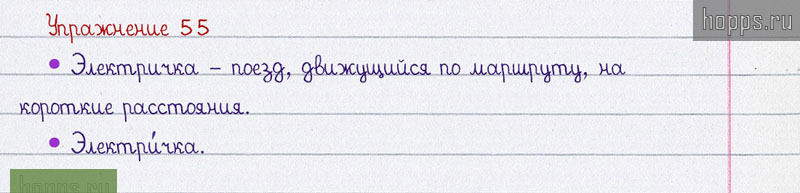 Упражнение 55
hopps.ru
• Электричка – поезд, движущийся по маршруту, на
короткие расстояния.
• Электри́чка.
hopps.ru